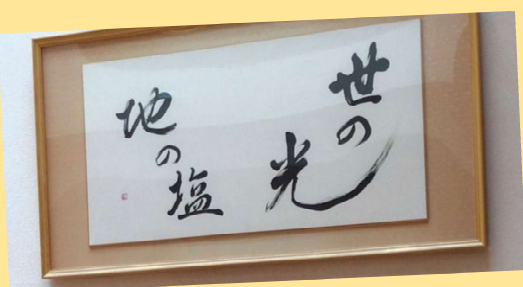 世の
光
地の
塩